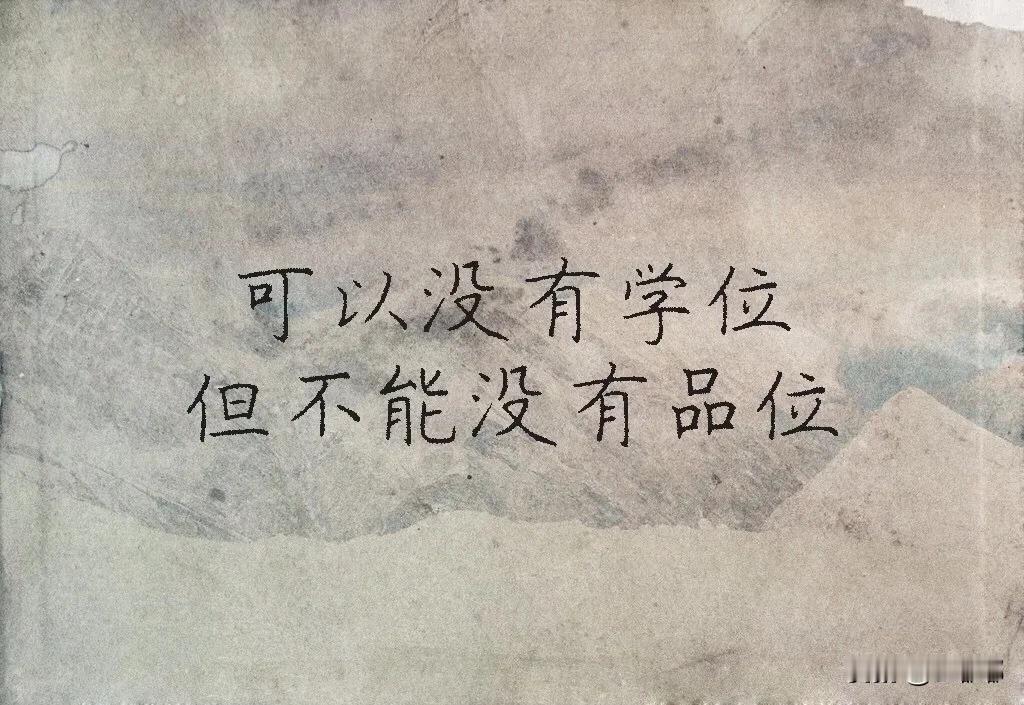 可以没有学位
但不能没有品位